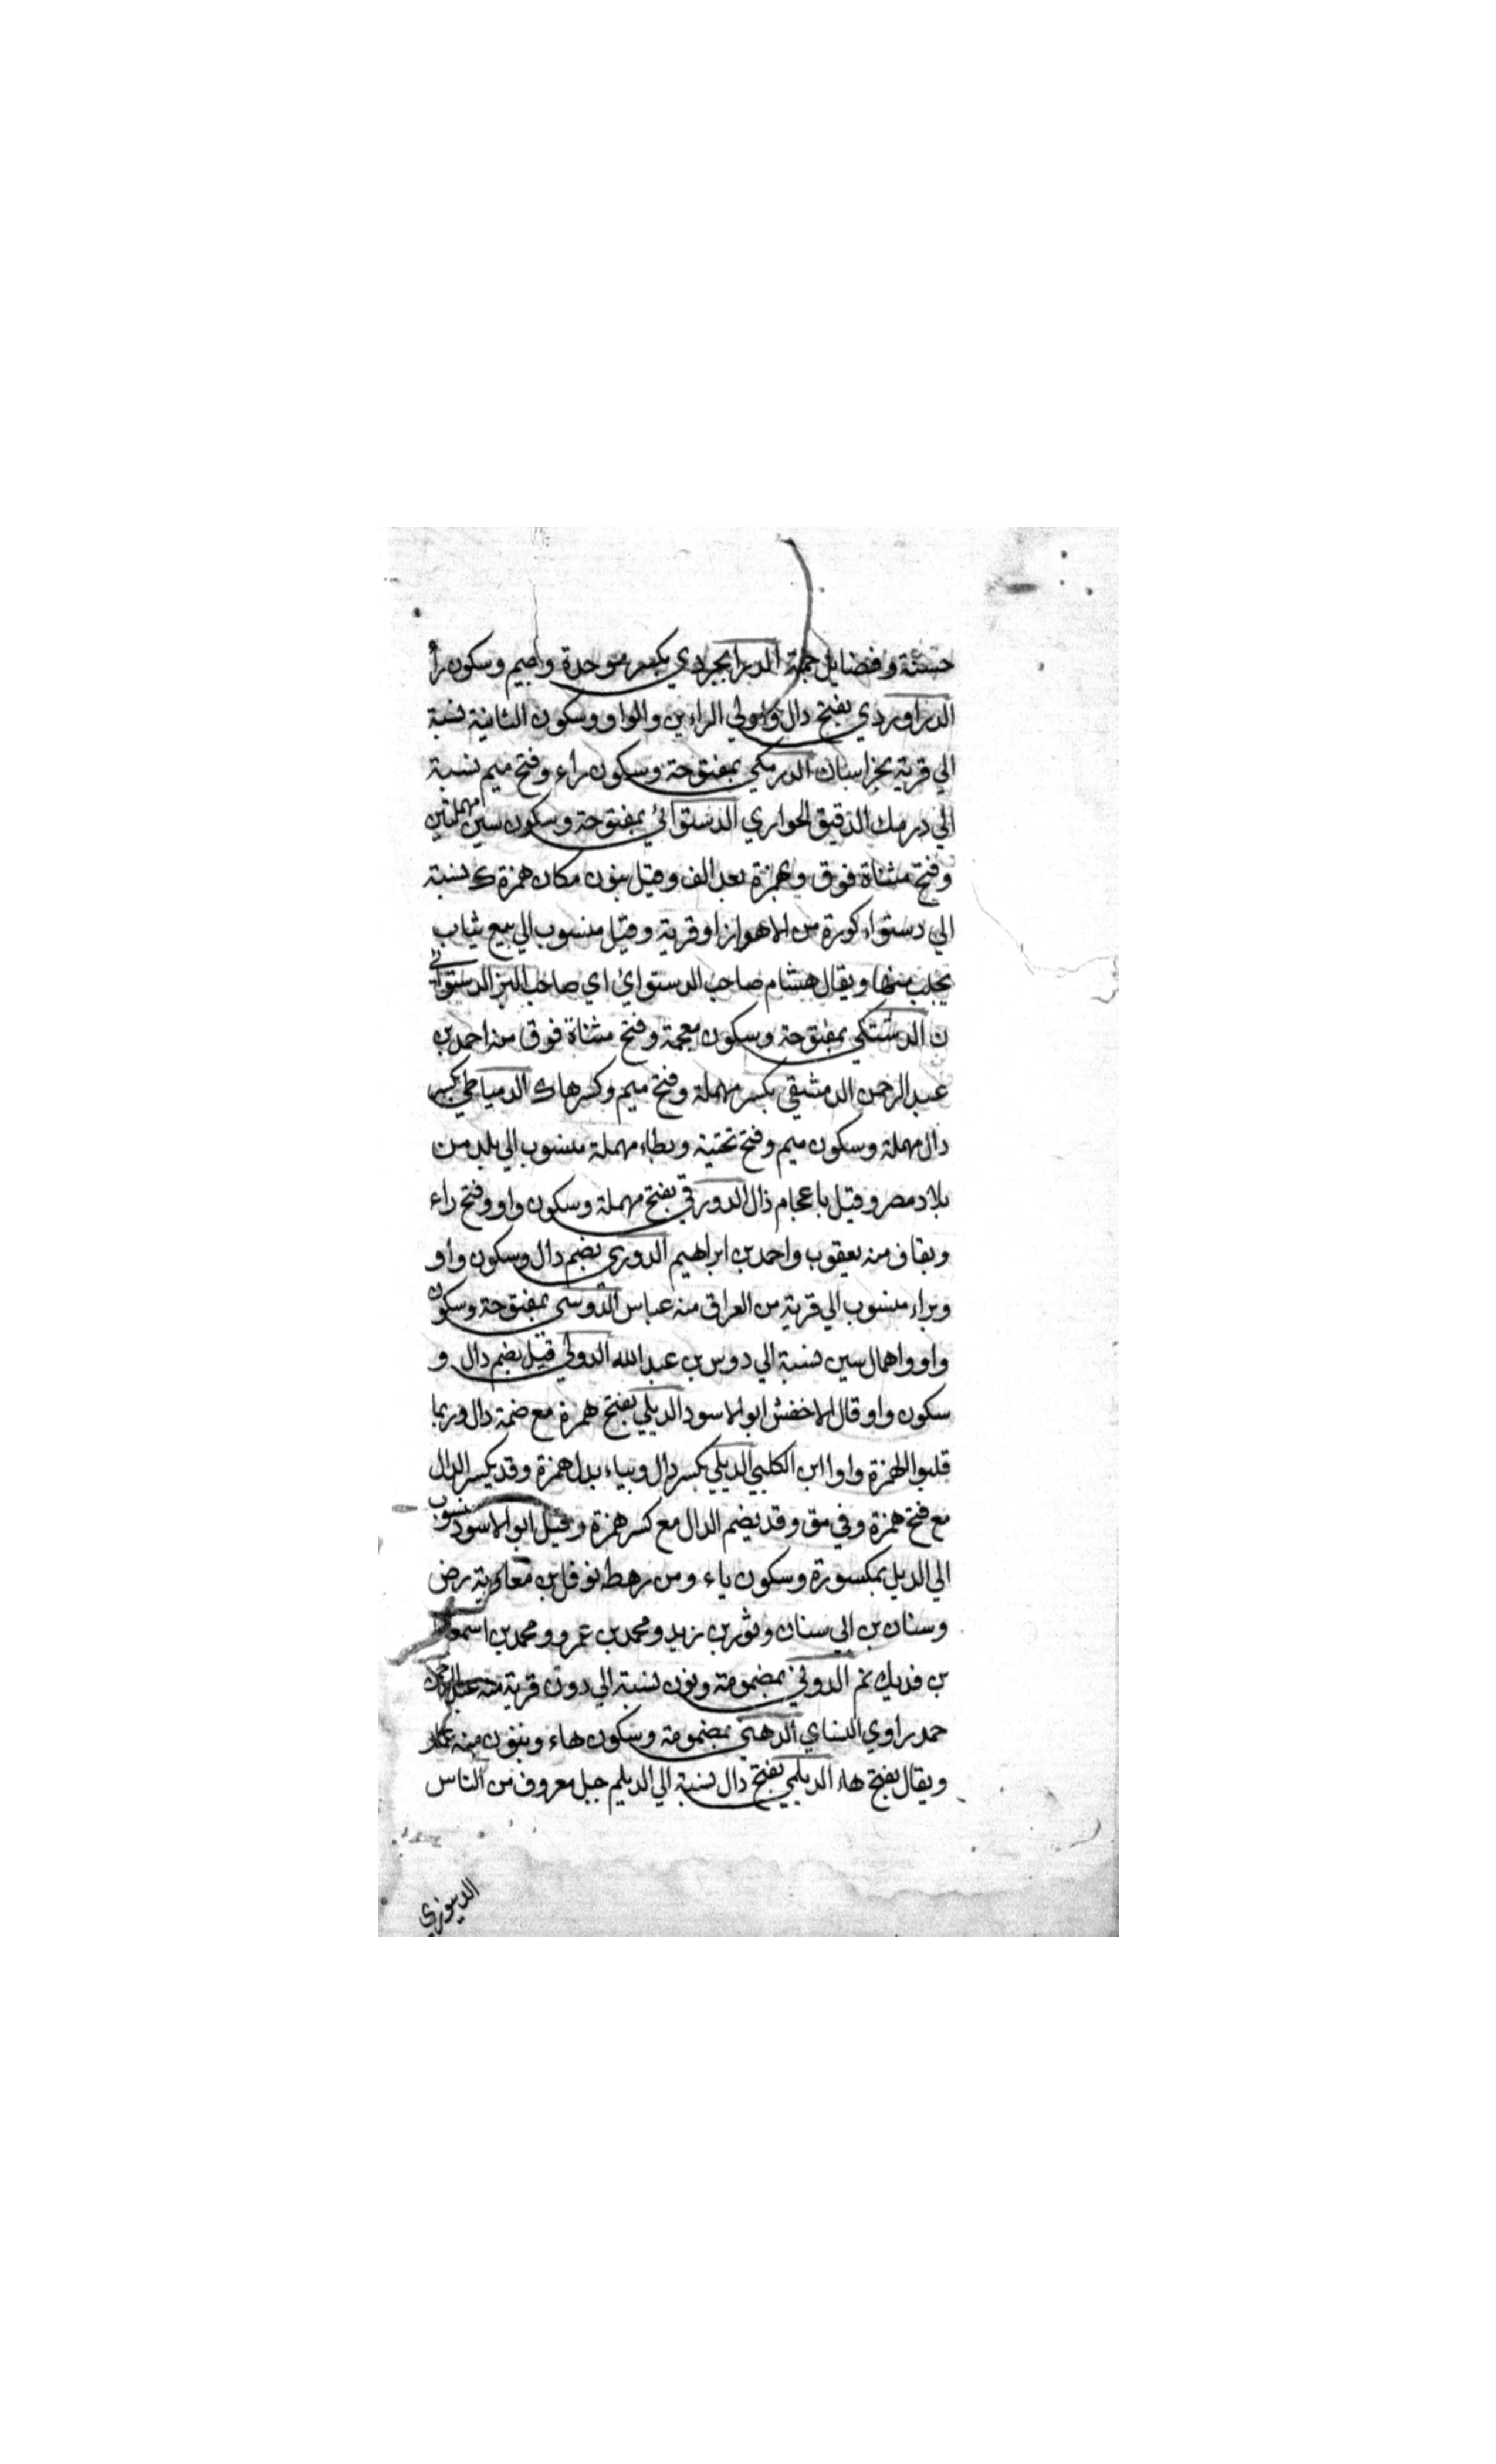 حسنة وفضايل جمة الدرابجردي بكسر موحدة وجيم وسكون را
الدراوردي بفتح دال واولي الراءين والواو وسكون الثانية نسبة
الي قرية بخراسان الدرمكي بمفتوحة وسكون راء وفتح ميم نسبة
الي درمك الدقيق الحواري الدستوائي بمفتوحة وسكون سين مهملتين
وفتح مثناة فوق وبهمزة بعد الف وقيل بنون مكان همزة ك نسبة
الي دستواء كورة من الاهواز او قرية وقيل منسوب الي بيع ثياب
يجلب منها ويقال هشام صاحب الدستوائ اي صاحب البز الدستوائي
ن الدشتكي بمفتوحة وسكون معجمة وفتح مثناة فوق منه احمد بن
عبد الرحمن الدمشقي بكسر مهملة وفتح ميم وكسرها ك الدمياطي بكسر
دال مهملة وسكون ميم وفتح تحتية وبطاء مهملة منسوب الي بلد من
بلاد مصر وقيل باعجام ذال الدورقي بفتح مهملة وسكون واو وفتح راء
وبقاف منه يعقوب واحمد بن ابراهيم الدوري بضم دال وسكون واو
وبراء منسوب الي قرية من العراق منه عباس الدوسي بمفتوحة وسكون
واو واهمال سين نسبة الي دوس بن عبد الله الدولي قيل بضم دال و
سكون واو قال الاخفش ابو الاسود الديلي بفتح همزة مع ضمة دال وربما
قلبوا الهمزة واوا ابن الكلبي الديلي بكسر دال وبياء بدل همزة وقد يكسر الدال
مع فتح همزة وفي مق وقد يضم الدال مع كسر همزة وقيل ابو الاسود منسوب
الي الديل بمكسورة وسكون ياء ومن رهطه نوفل بن معاوية رض
وسنان بن ابي سنان وثور بن زيد ومحمد بن عمرو ومحمد بن اسمعيل
بن فديك نم الدوني بمضمومة ونون نسبة الي دون قرية منه عبد الرحمن
حمد راوي النساي الدهني بمضمومة وسكون هاء وبنون منه عمار
ويقال بفتح هاء الديلمي بفتح دال نسبة الي الديلم جبل معروف من الناس
الدينوري